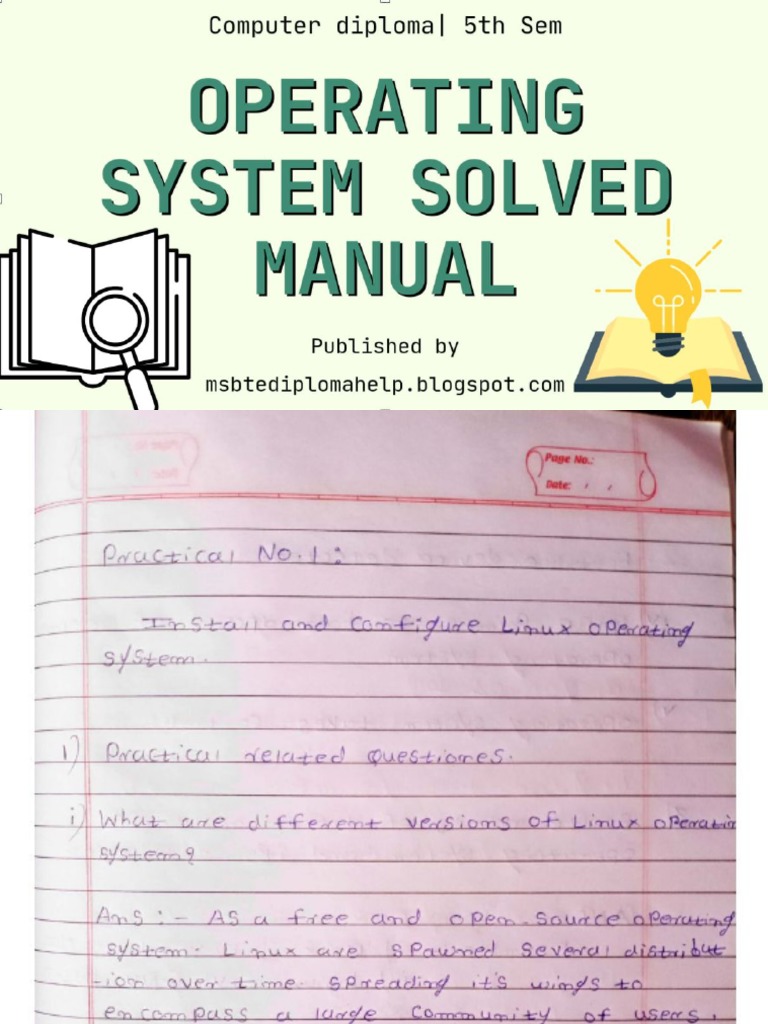 Computer diploma| 5th Sem
OPERATING
SYSTEM SOLVED
MANUAL
Published by
msbtediplomahelp.blogspot.com
Page No.:
Date: , ,
Practical No.1:
Install and configure Linux operating
system.
1) Practical related questiones.
i) What are different versions of Linux operatin
system?
Ans :- As a free and open source operating
system. Linux are spawned several distribut
-ion over time. spreading it's wings to
encompass a large community of users.